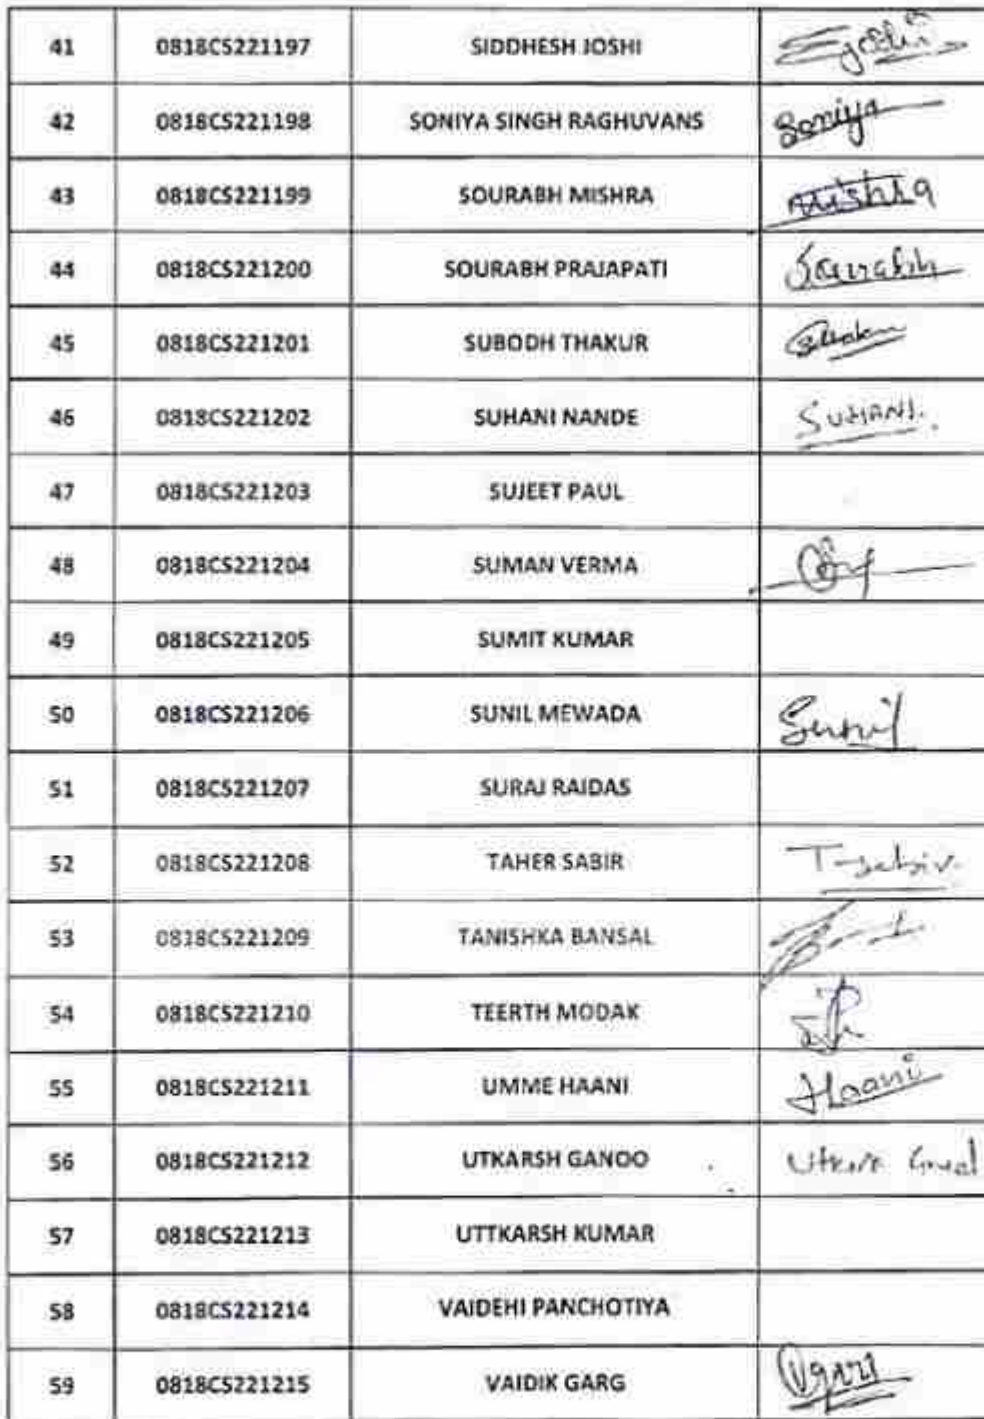 41 0818CS221197 SIDDHESH JOSHI
42 0818CS221198 SONIYA SINGH RAGHUVANS Soniya
43 0818CS221199 SOURABH MISHRA Mishra
44 0818CS221200 SOURABH PRAJAPATI Sourabh
45 0818CS221201 SUBODH THAKUR
46 0818CS221202 SUHANI NANDE SUHANI.
47 0818CS221203 SUJEET PAUL
48 0818CS221204 SUMAN VERMA
49 0818CS221205 SUMIT KUMAR
50 0818CS221206 SUNIL MEWADA Sunil
51 0818CS221207 SURAJ RAIDAS
52 0818CS221208 TAHER SABIR T-sabir.
53 0818CS221209 TANISHKA BANSAL
54 0818CS221210 TEERTH MODAK
55 0818CS221211 UMME HAANI Haani
56 0818CS221212 UTKARSH GANOO
57 0818CS221213 UTTKARSH KUMAR
58 0818CS221214 VAIDEHI PANCHOTIYA
59 0818CS221215 VAIDIK GARG